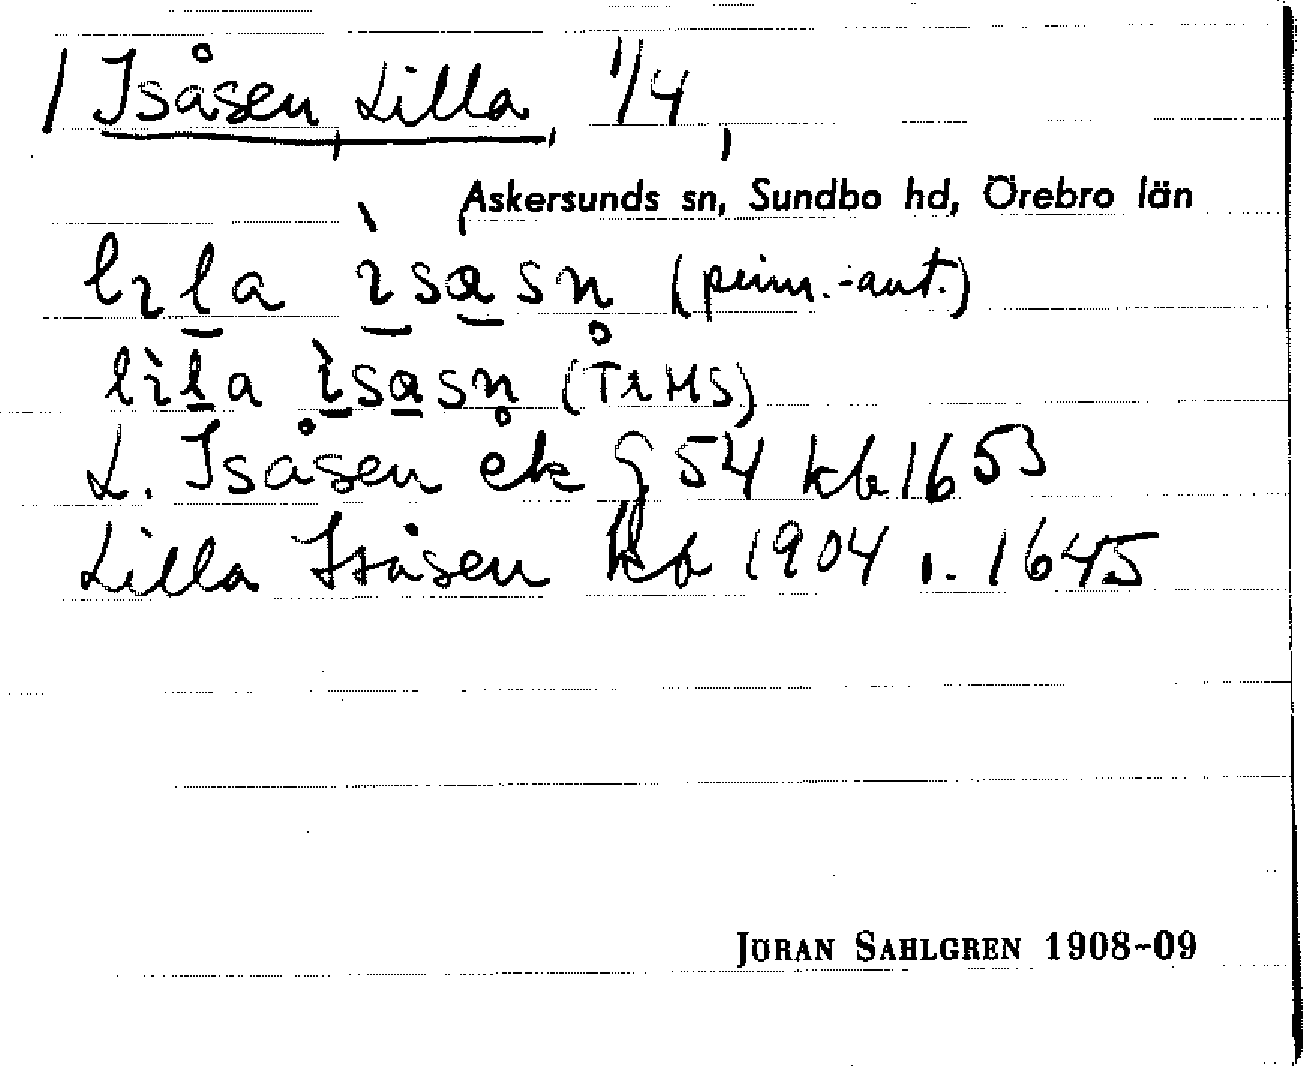 / Isåsen Lilla, 1/4,
Askersunds sn, Sundbo hd, Örebro län
lɪla ìsɑsn̥ (prim.-ant.)
lìla ìsɑsn̥ (TrHS)
L. Isåsen ek § 54 kb 1653
Lilla Isåsen kb 1904 1. 1645
JORAN SAHLGREN 1908-09